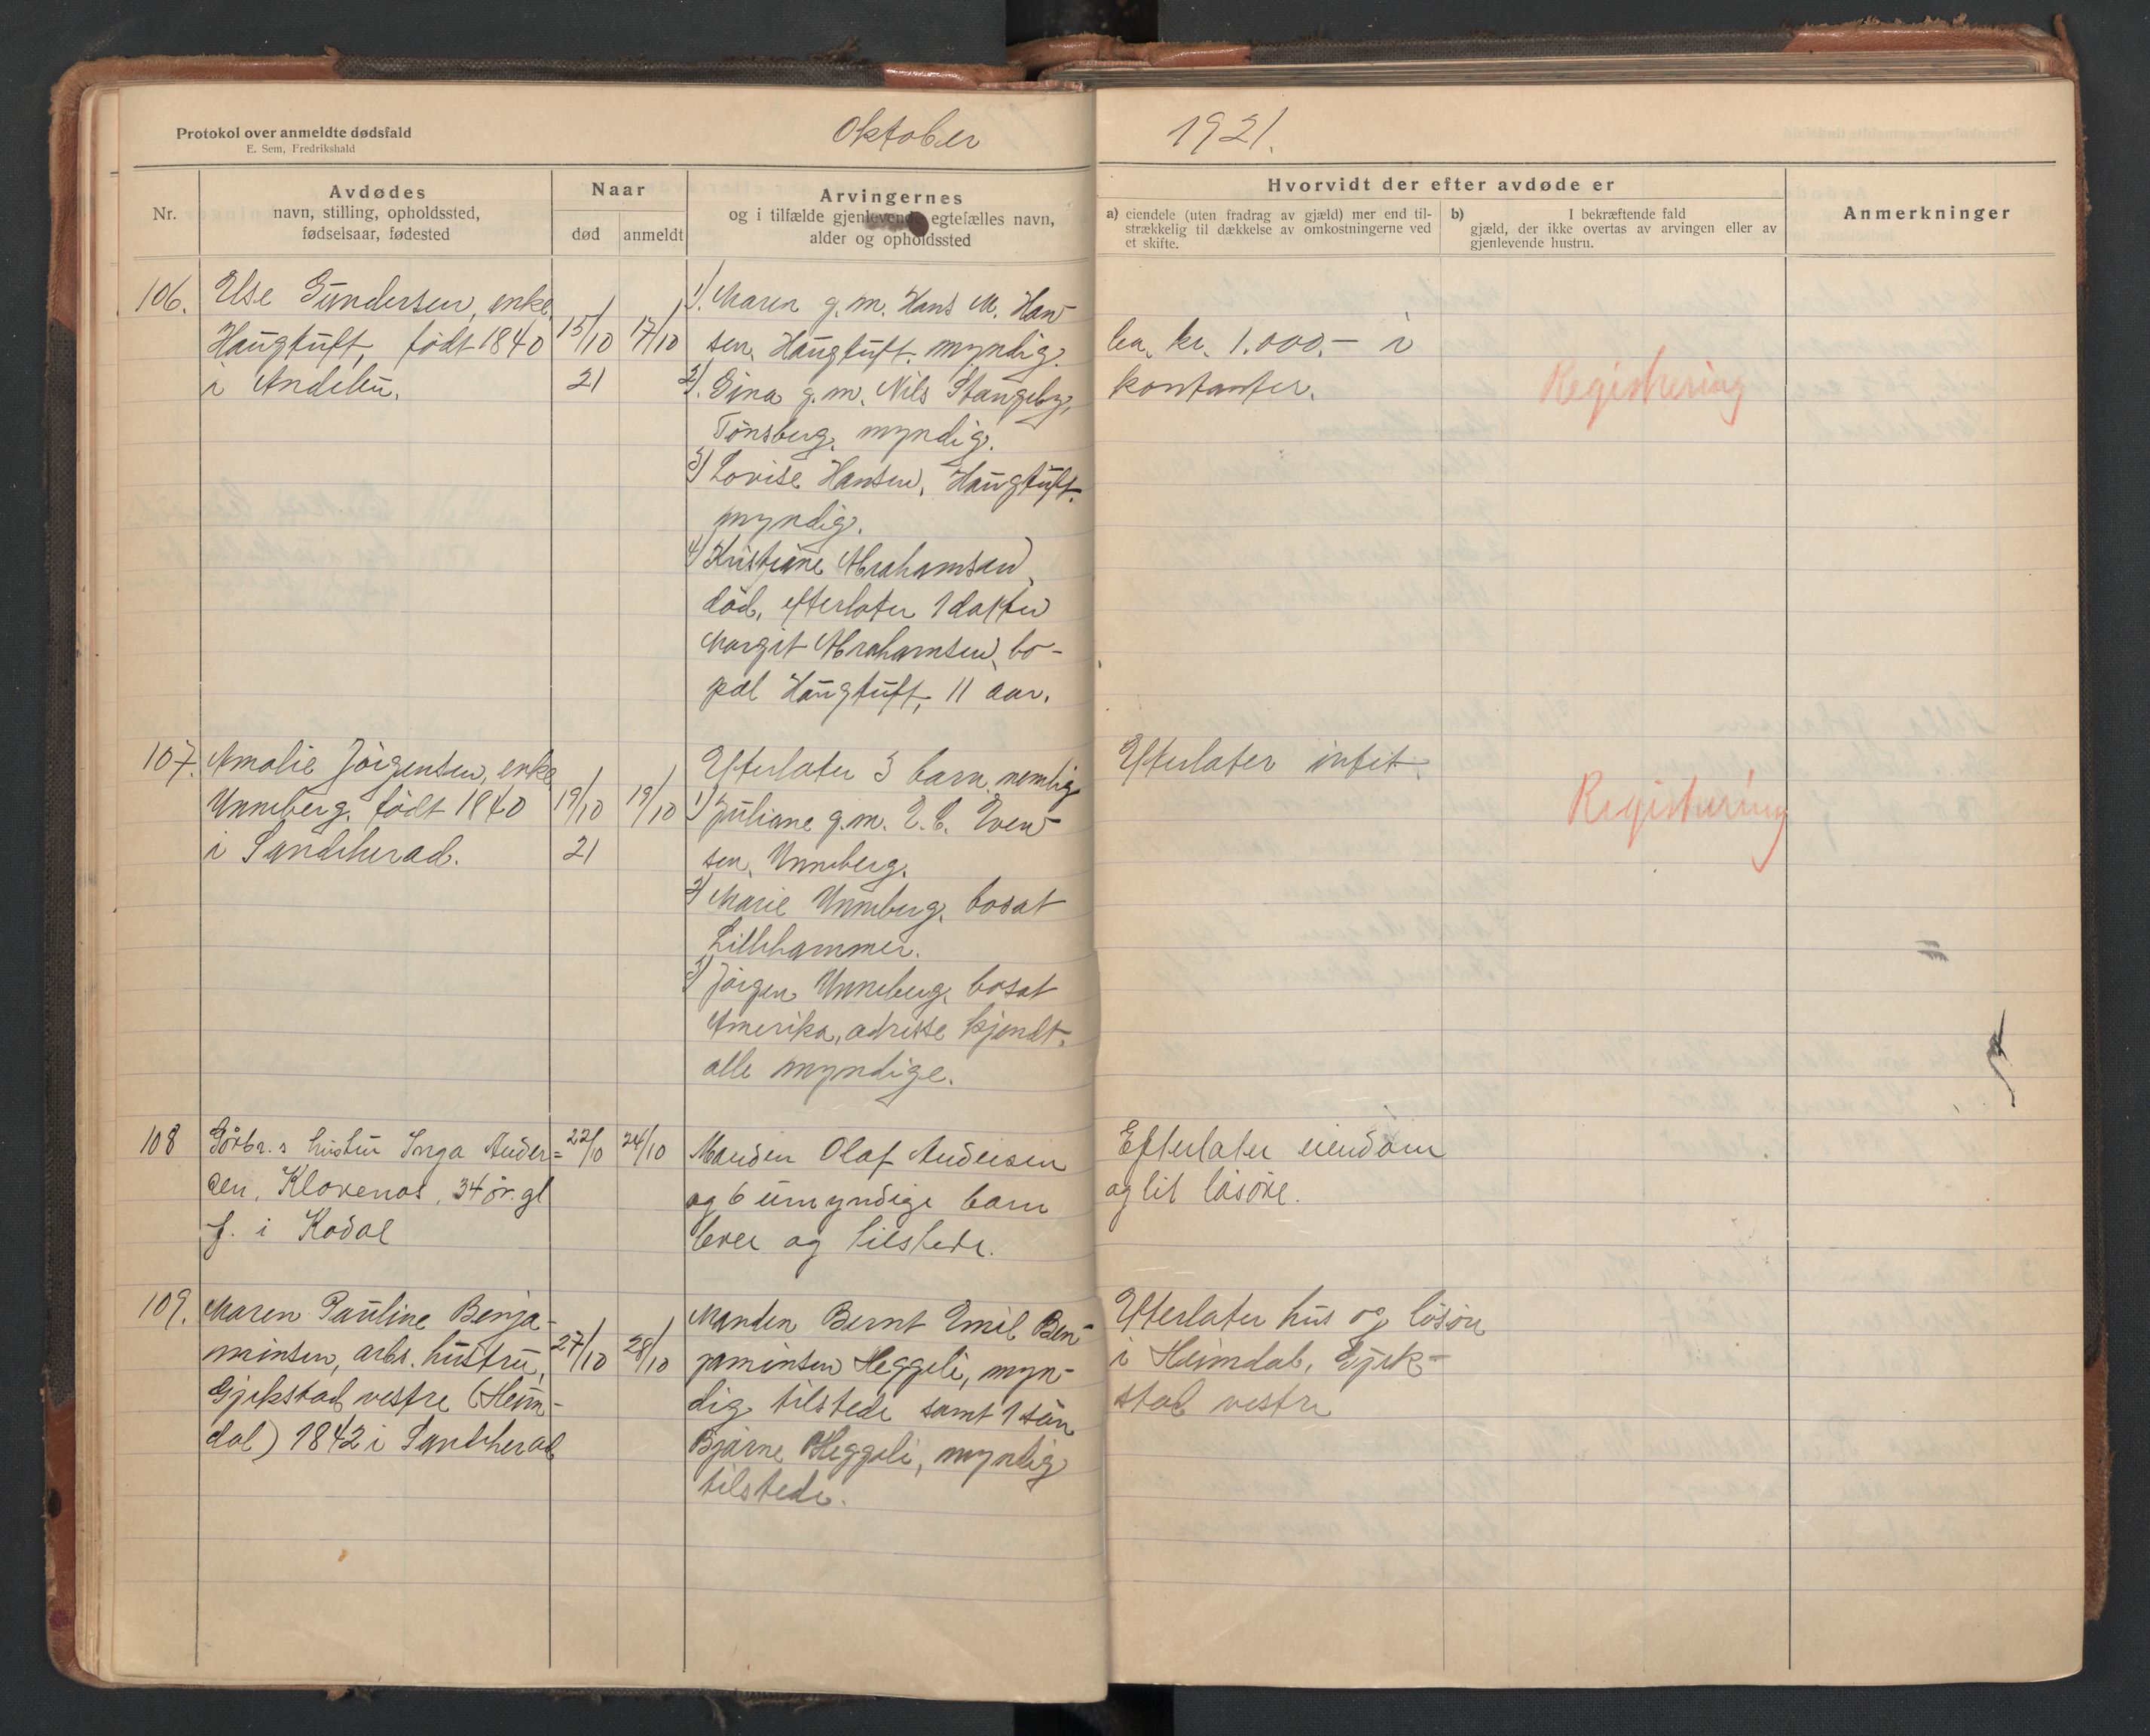 Protokol over anmeldte dødsfald
E. Sem, Fredrikshald
Oktober
1921.
Nr.
Avdødes
navn, stilling, opholdssted,
fødselsaar, fødested
Naar
død
anmeldt
Arvingernes
og i tilfælde gjenlevende egtefælles navn,
alder og opholdssted
Hvorvidt der efter avdøde er
a) eiendele (uten fradrag av gjæld) mer end til-
strækkelig til dækkelse av omkostningerne ved
et skifte.
b) I bekræftende fald
gjæld, der ikke overtas av arvingen eller av
gjenlevende hustru.
Anmerkninger
106.
Else Gundersen, enke,
Haugtuft, født 1840
i Andebu.
15/10
21
17/10
1). Maren g.m. Hans M. Han-
sen, Haugtuft. myndig.
2). Gina g.m. Nils Stangeby,
Tønsberg, myndig.
3) Lovise Hansen, Haugtuft.
myndig.
4) Kristiane Abrahamsen,
død, efterlater 1 datter
Margit Abrahamsen, bo-
pæl Haugtuft, 11 aar.
ca. kr. 1.000,- i
kontanter.
Registrering
107.
Amalie Jørgensen, enke
Unneberg, født 1840
i Sandeherad.
19/10
21
19/10
Efterlater 3 barn, nemlig
1) Juliane g.m. E. C. Even-
sen, Unneberg.
2) Marie Unneberg, bosat
Lillehammer.
3) Jørgen Unneberg, bosat
Amerika, adresse kjendt.
alle myndige.
Efterlater intet.
Registrering
108
Gårbr.s hustru Inga Ander=
sen, Klavenes, 34 år. gl
f. i Kodal
22/10
24/10
Manden Olaf Andersen
og 6 umyndige barn
lever og tilstede.
Efterlater eiendom
og lit løsøre.
109.
Maren Pauline Benja-
minsen, arbs. hustru,
Gjekstad vestre (Heim-
dal) 1842 i Sandeherad
27/10
28/10
Manden Bernt Emil Ben-
jaminsen Heggeli, myn-
dig tilstede samt 1 søn
Bjarne Heggeli, myndig
tilstede.
Efterlater hus og løsøre
i Heimdal, Gjek-
stad vestre